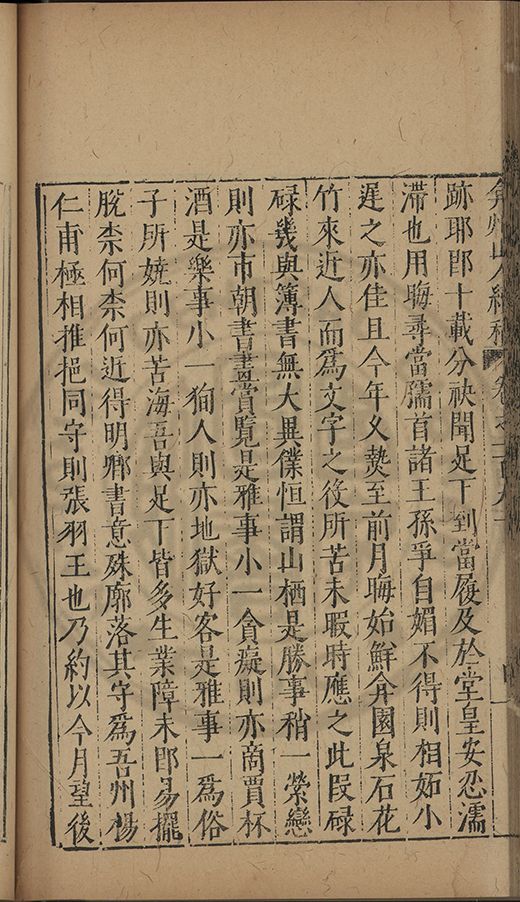 弇州山人續稿 卷之二百
跡耶郎十載分袂聞足下到當履及於堂皇安忍濡
滯也用晦尋當孺首諸王孫爭自媚不得則相妬小
遲之亦佳且今年久𤍠至前月晦始鮮弇園泉石花
竹來近人而為文字之役所苦未暇時應之此段碌
碌幾與簿書無大異僕恒謂山栖是勝事稍一縈戀
則亦市朝書畫賞覽是雅事小一貪癡則亦商賈杯
酒是樂事小一狥人則亦地獄好客是雅事一為俗
子所嬈則亦苦海吾與足下皆多生業障未即易擺
脫柰何柰何近得明卿書意殊廓落其守為吾州楊
仁甫極相推挹同守則張羽王也乃約以今月望後